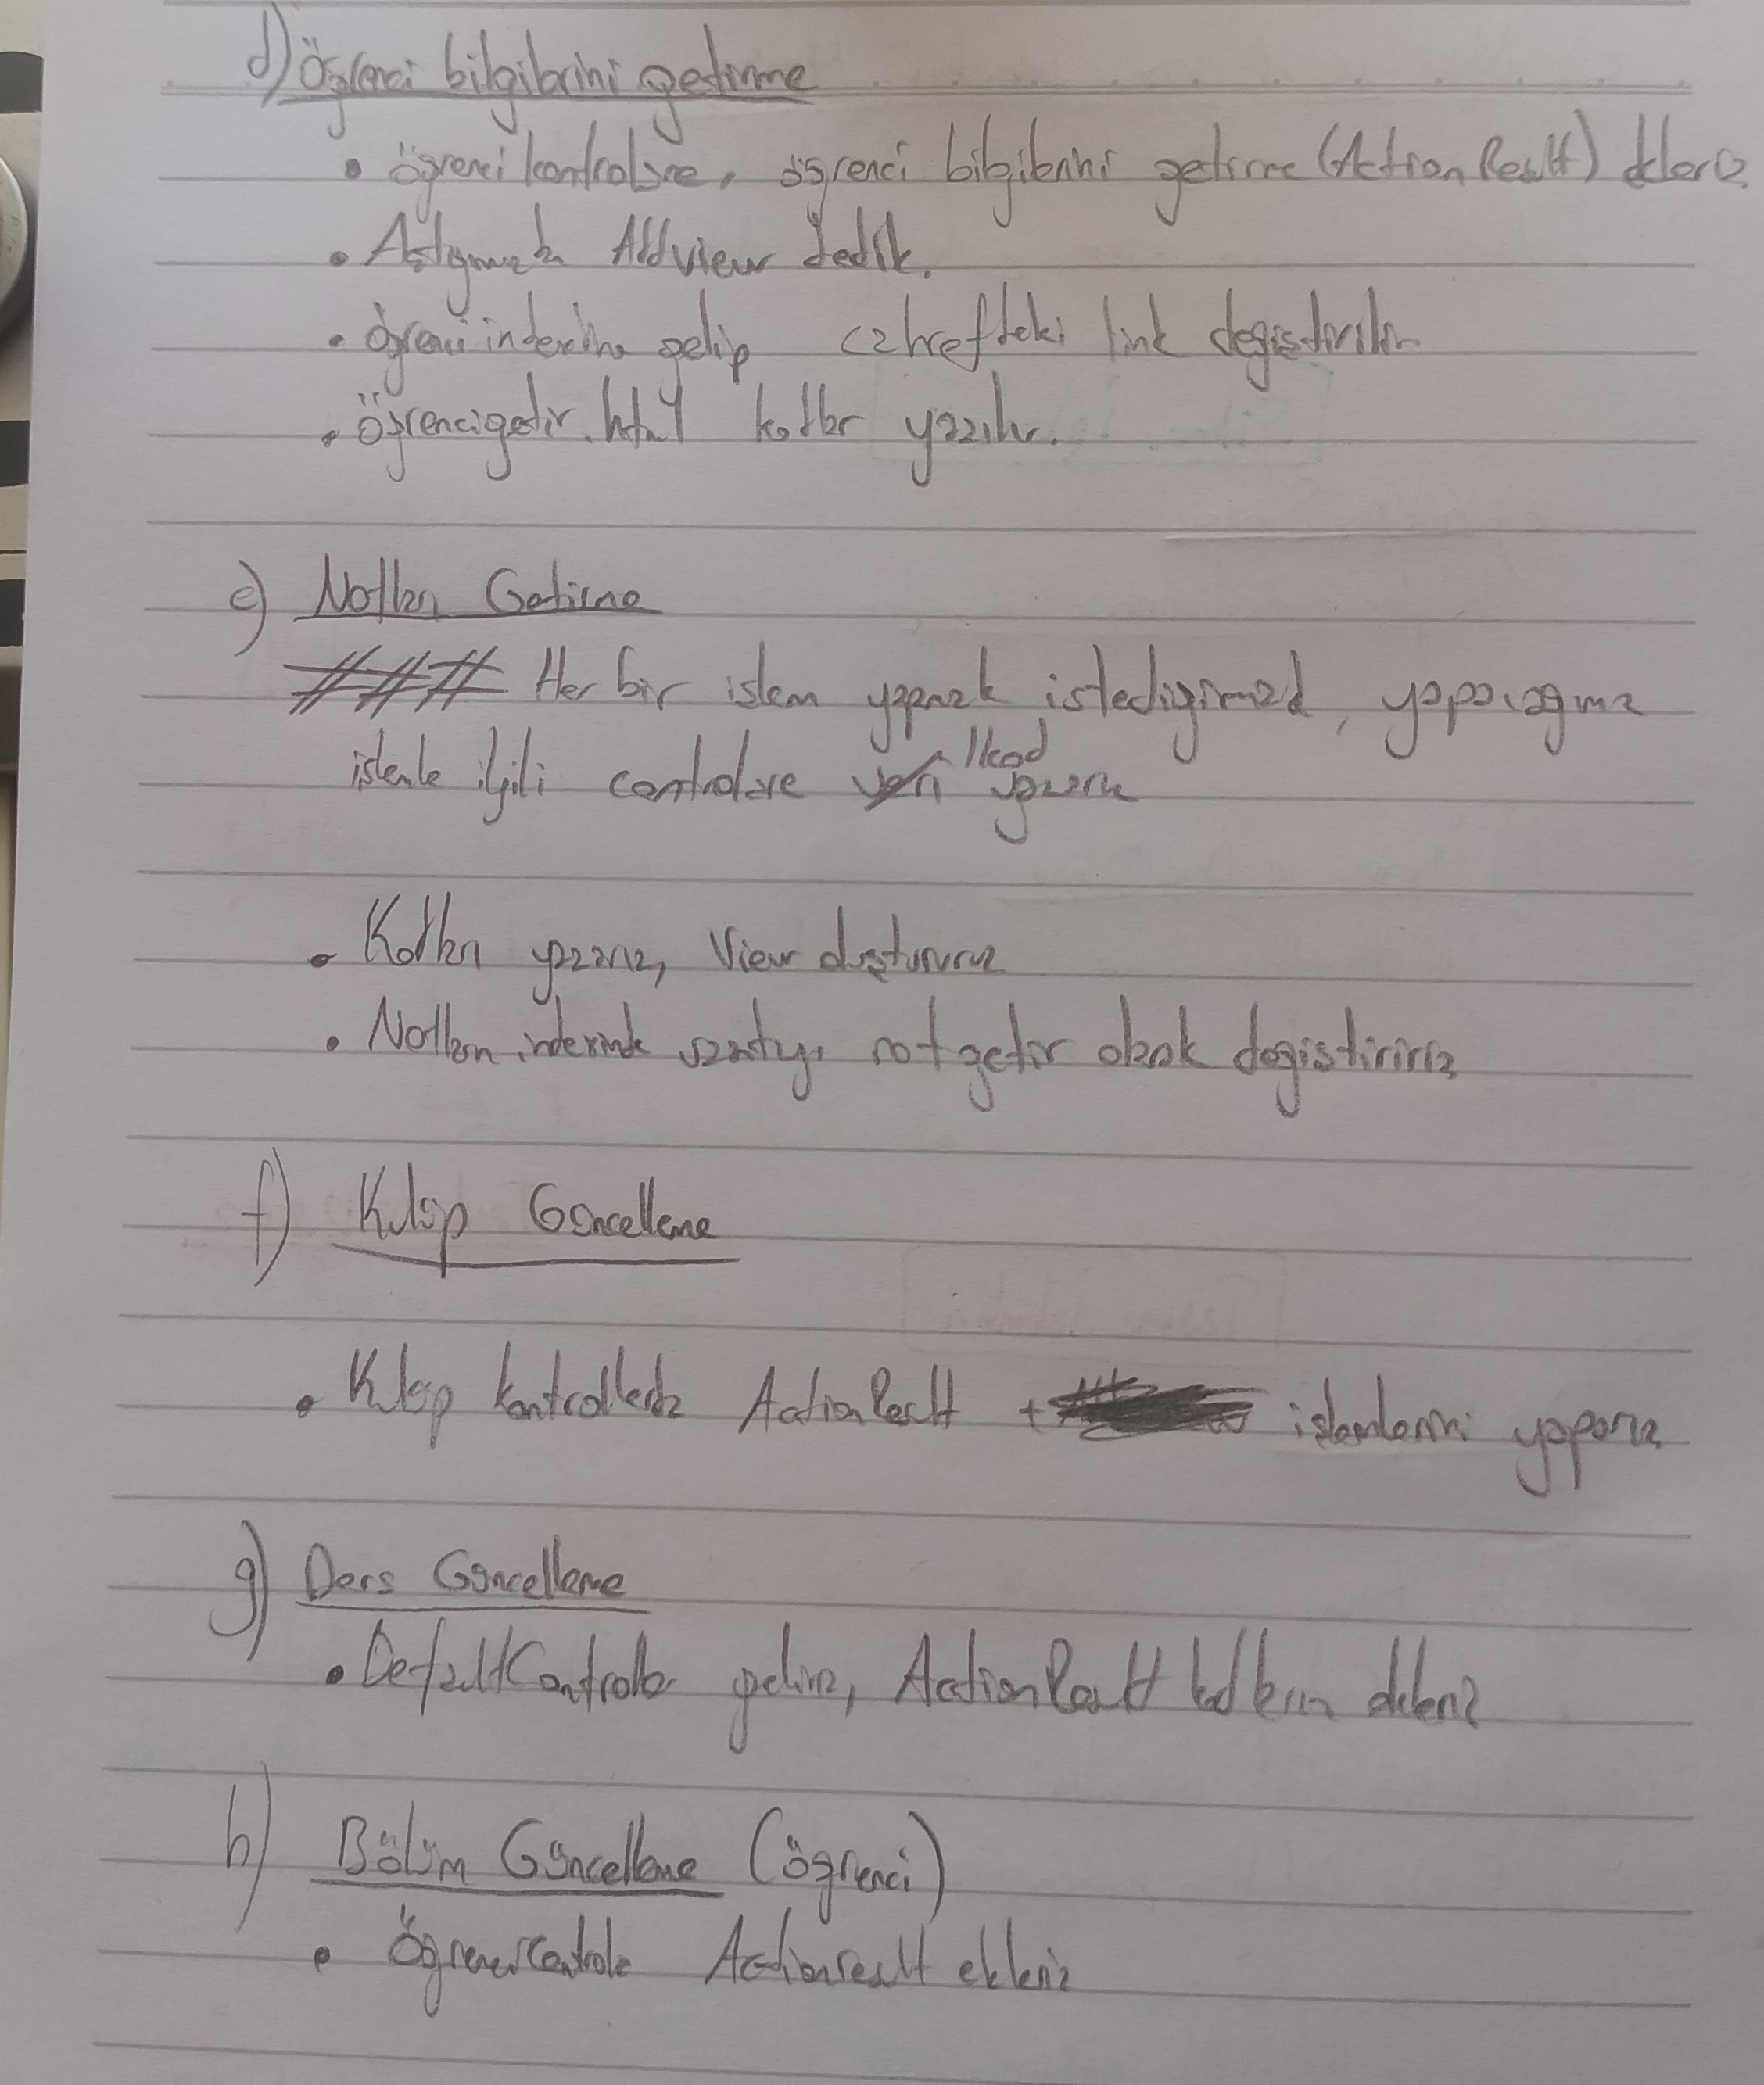 d) Öğrenci bilgilerini getirme
• öğrenci kontrolüne, öğrenci bilgilerini getirme (ActionResult) ekleriz
• Addview dedik.
• öğrenci indexine gelip a href teki link değiştirilir
• öğrencigetir.html kodlar yazılır.
e) Notları Getirme
### Her bir işlem yapmak istediğimizde, yapacağımız
işlemle ilgili controlere kod yazarız
• Kodları yazarız, View oluştururuz
• Notların indexinde uzantıyı not getir olarak değiştiririz
f) Kulüp Güncelleme
• Kulüp kontrollerda ActionResult + işlemlerini yaparız
g) Ders Güncelleme
• DefaultController geliriz, ActionResult kodlarını ekleriz
h) Bölüm Güncelleme (öğrenci)
• ÖğrenciControle Actionresult ekleriz